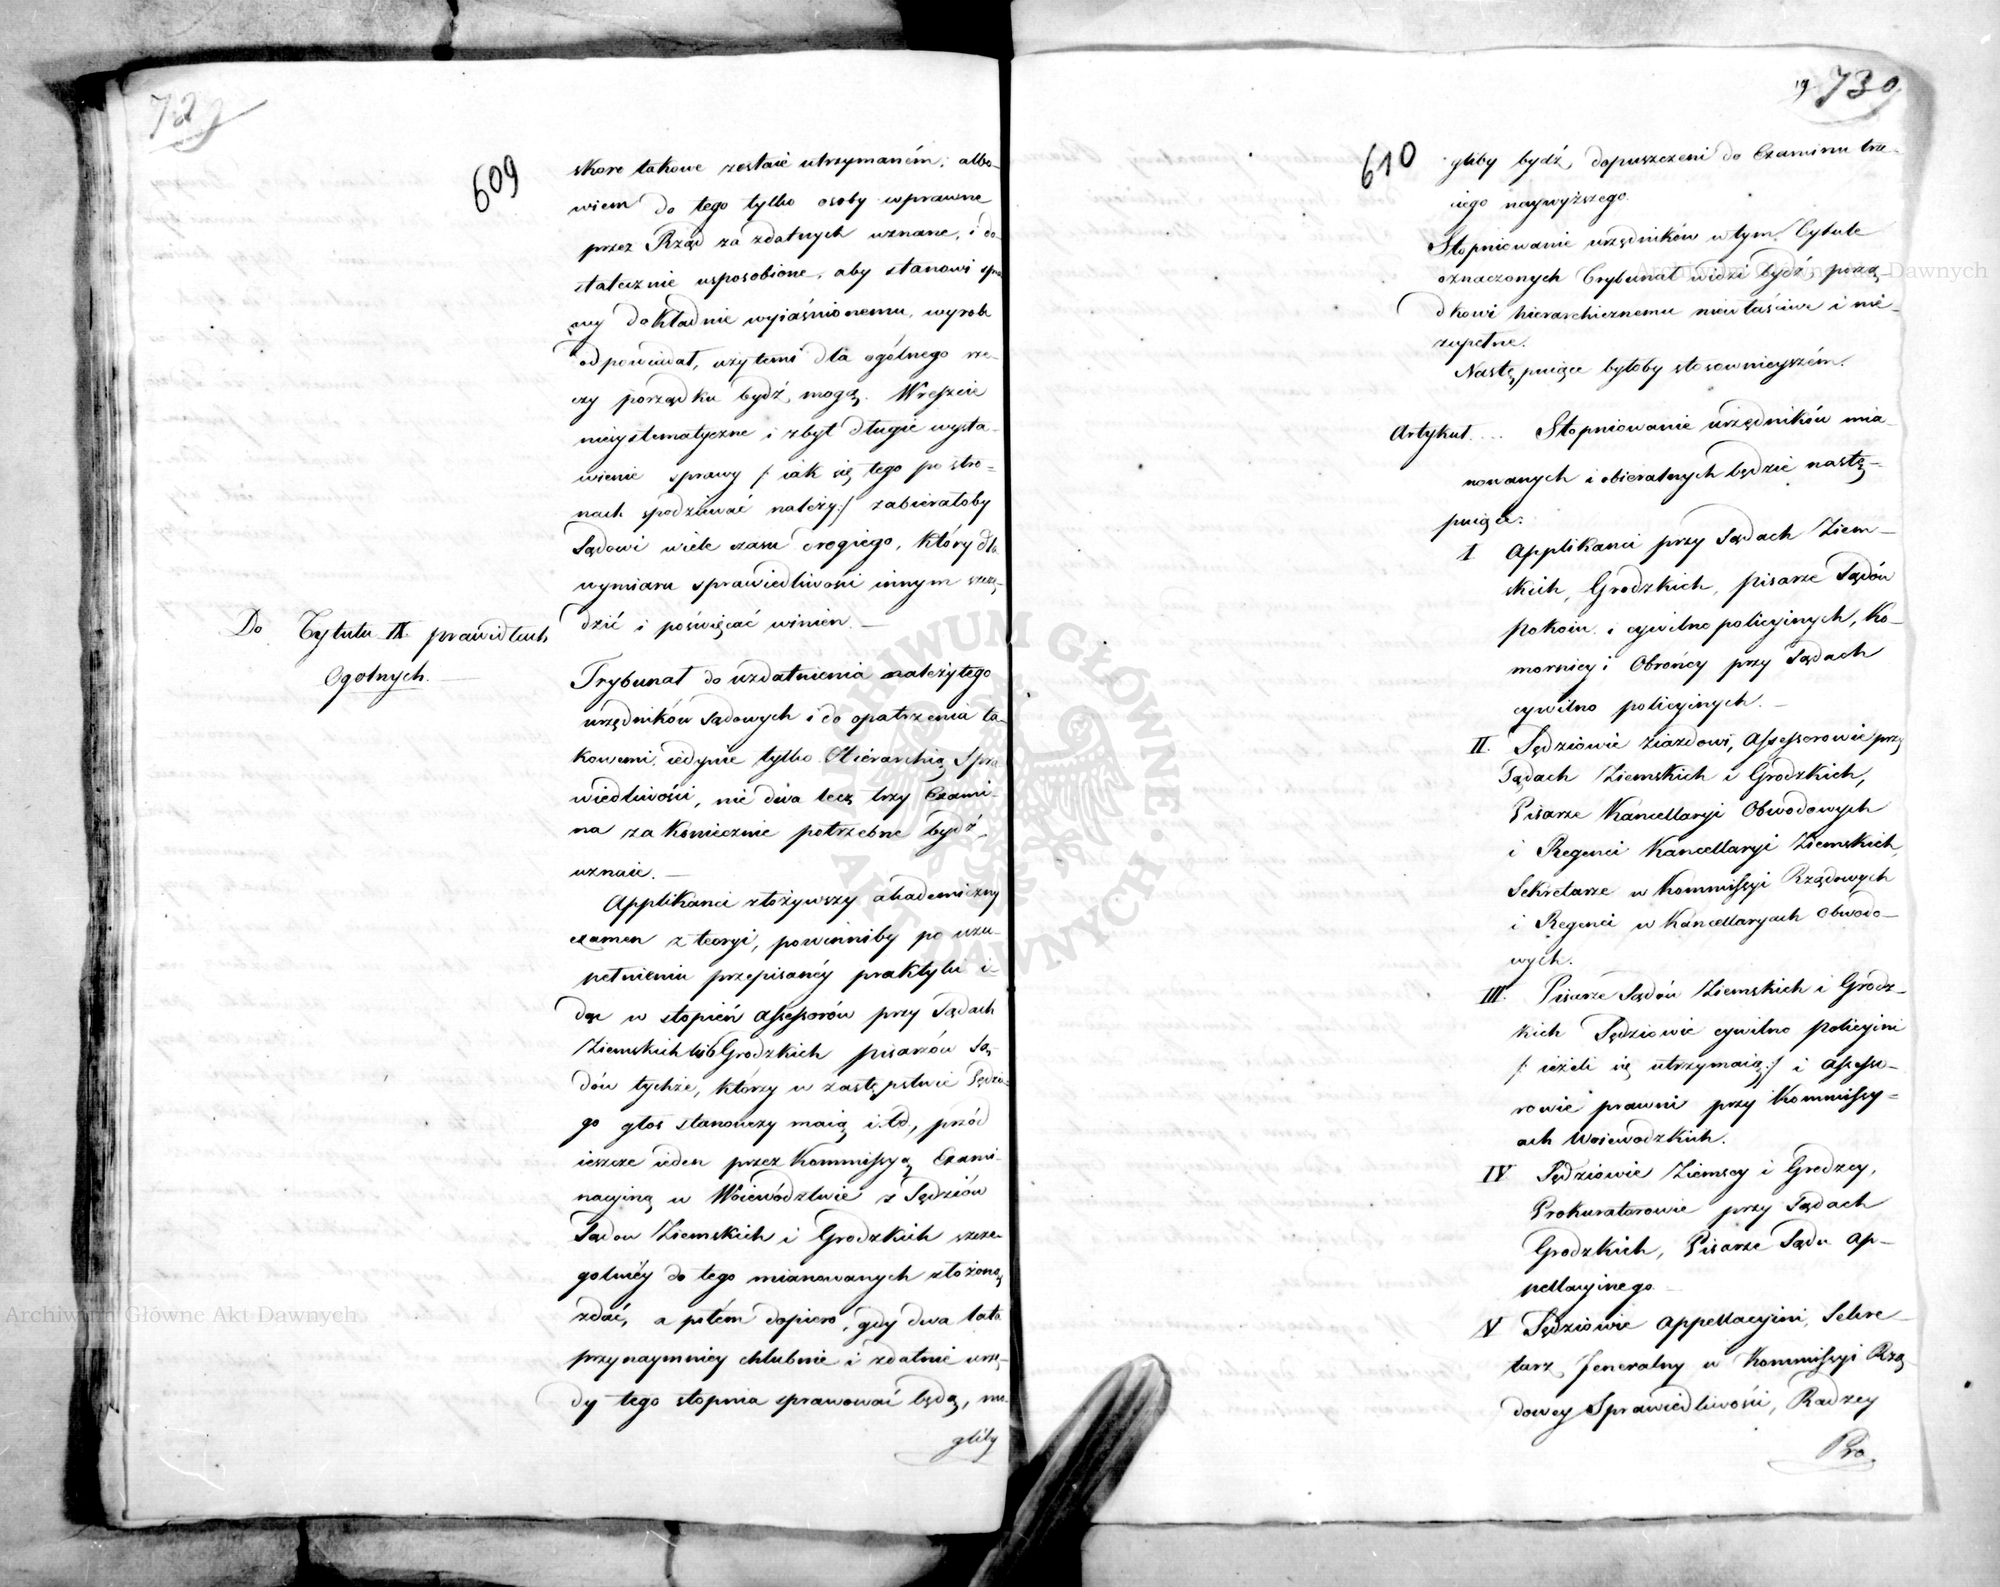 729
609
skoro takowe zostaie utrzymaném; albo-
wiem do tego tylko osoby wprawne
przez Rząd za zdatnych uznane, i do-
statecznie usposobione, aby stanowi spra
wy dokładnie wyiaśnionemu, wyrok
odpowiadał, użytemi dla ogólnego rze-
czy porządku bydź mogą. Wreszcie
niesystematyczne i zbyt długie wysta-
wienie sprawy /: iak się tego po stro-
nach spodziewać należy :/ zabierałoby
Sądowi wiele czasu drogiego, który dla
wymiaru sprawiedliwości innym oszczę-
dzić i poświęcać winien. —
Do Tytułu IX. prawidłach
Ogolnych. —
Trybunał do uzdatnienia należytego
urzędników sądowych i do opatrzenia ta-
kowemi iedynie tylko Hierarchią Spra
wiedliwości, nie dwa lecz trzy Exami-
na za koniecznie potrzebne bydź
uznaie. —
Applikanci złożywszy akademiczny
examen z teoryi, powinniby po uzu-
pełnieniu przepisanéy praktyki i-
dąc w stopień assessorów przy Sądach
Ziemskich lub Grodzkich pisarzów Są-
dów tychże, którzy w zastępstwie Sędzie-
go głos stanowczy maią i. t. d., przód
ieszcze ieden przez Kommissyą Exami-
nacyiną w Woiewództwie z Sędziów
Sądów Ziemskich i Grodzkich szcze-
golnéy do tego mianowanych złożoną
zdać, a potém dopiero, gdy dwa lata
przynaymniey chlubnie i zdatnie urzę-
dy tego stopnia sprawować będą, mo-
gliby
19 739
610
gliby bydź dopuszczeni do Examinu trze-
ciego naywyższego.
Stopniowanie urzędników w tym Tytule
oznaczonych Trybunał widzi bydź porzą
dkowi hierarchicznemu niewłaściwe i nie-
zupełne.
Następuiące byłoby stosownieyszém.
Artykuł .... Stopniowanie urzędników mia-
nowanych i obieralnych będzie nastę-
puiące:
I Applikanci przy Sądach Ziem-
skich, Grodzkich, pisarze Sądów
Pokoiu i cywilno policyinych, Ko-
mornicy i Obrońcy przy Sądach
cywilno policyinych. —
II. Sędziowie ziazdowi, Assessorowie przy
Sądach Ziemskich i Grodzkich,
Pisarze Kancellaryi Obwodowych
i Regenci Kancellaryi Ziemskich,
Sekretarze w Kommissyi Rządowych
i Regenci w Kancellaryach Obwodo-
wych.
III. Pisarze Sądów Ziemskich i Grodz-
kich Sędziowie cywilno Policyini
/: ieżeli się utrzymaią :/ i Assesso-
rowie prawni przy Kommissy-
ach Woiewodzkich.
IV Sędziowie Ziemscy i Grodzcy,
Prokuratorowie przy Sądach
Grodzkich, Pisarze Sądu Ap-
pellacyinego. —
V Sędziowie Appellacyini, Sekre-
tarz Jeneralny w Kommissyi Rzą-
dowey Sprawiedliwości, Radzcy
Pro
Archiwum Główne Akt Dawnych
Archiwum Główne Akt Dawnych
ARCHIWUM GŁÓWNE AKT DAWNYCH